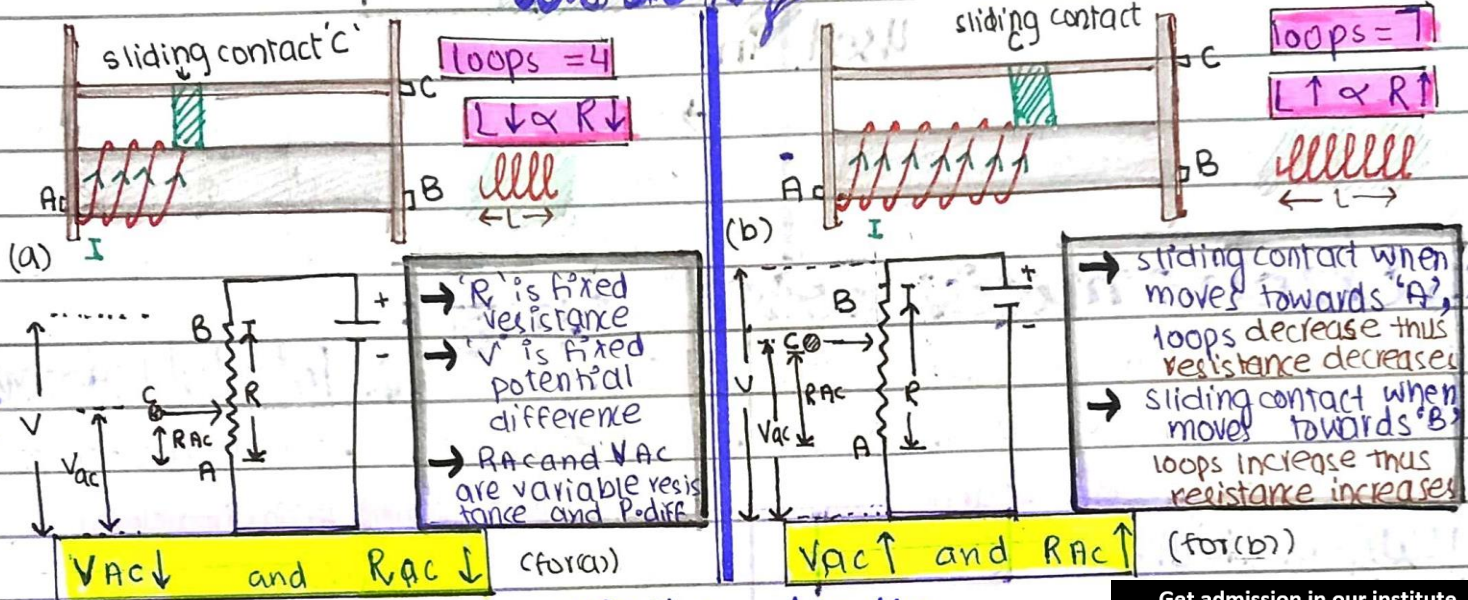 sliding contact 'C'
loops = 4
C
L↓ ∝ R↓
A
B
← L →
I
(a)
B
+
-
C
R
V
RAC
Vac
A
→ 'R' is fixed
resistance
→ 'V' is fixed
potential
difference
→ RAC and VAC
are variable resis
tance and P.diff
VAC↓ and RAC↓
(for(a))
sliding contact
C
loops = 7
C
L↑ ∝ R↑
A
B
← L →
I
(b)
B
+
-
C
V
RAC
R
Vac
A
→ sliding contact when
moves towards 'A',
loops decrease thus
resistance decreases
→ sliding contact when
moves towards 'B'
loops increase thus
resistance increases
Vac↑ and RAC↑
(for(b))
Get admission in our institute